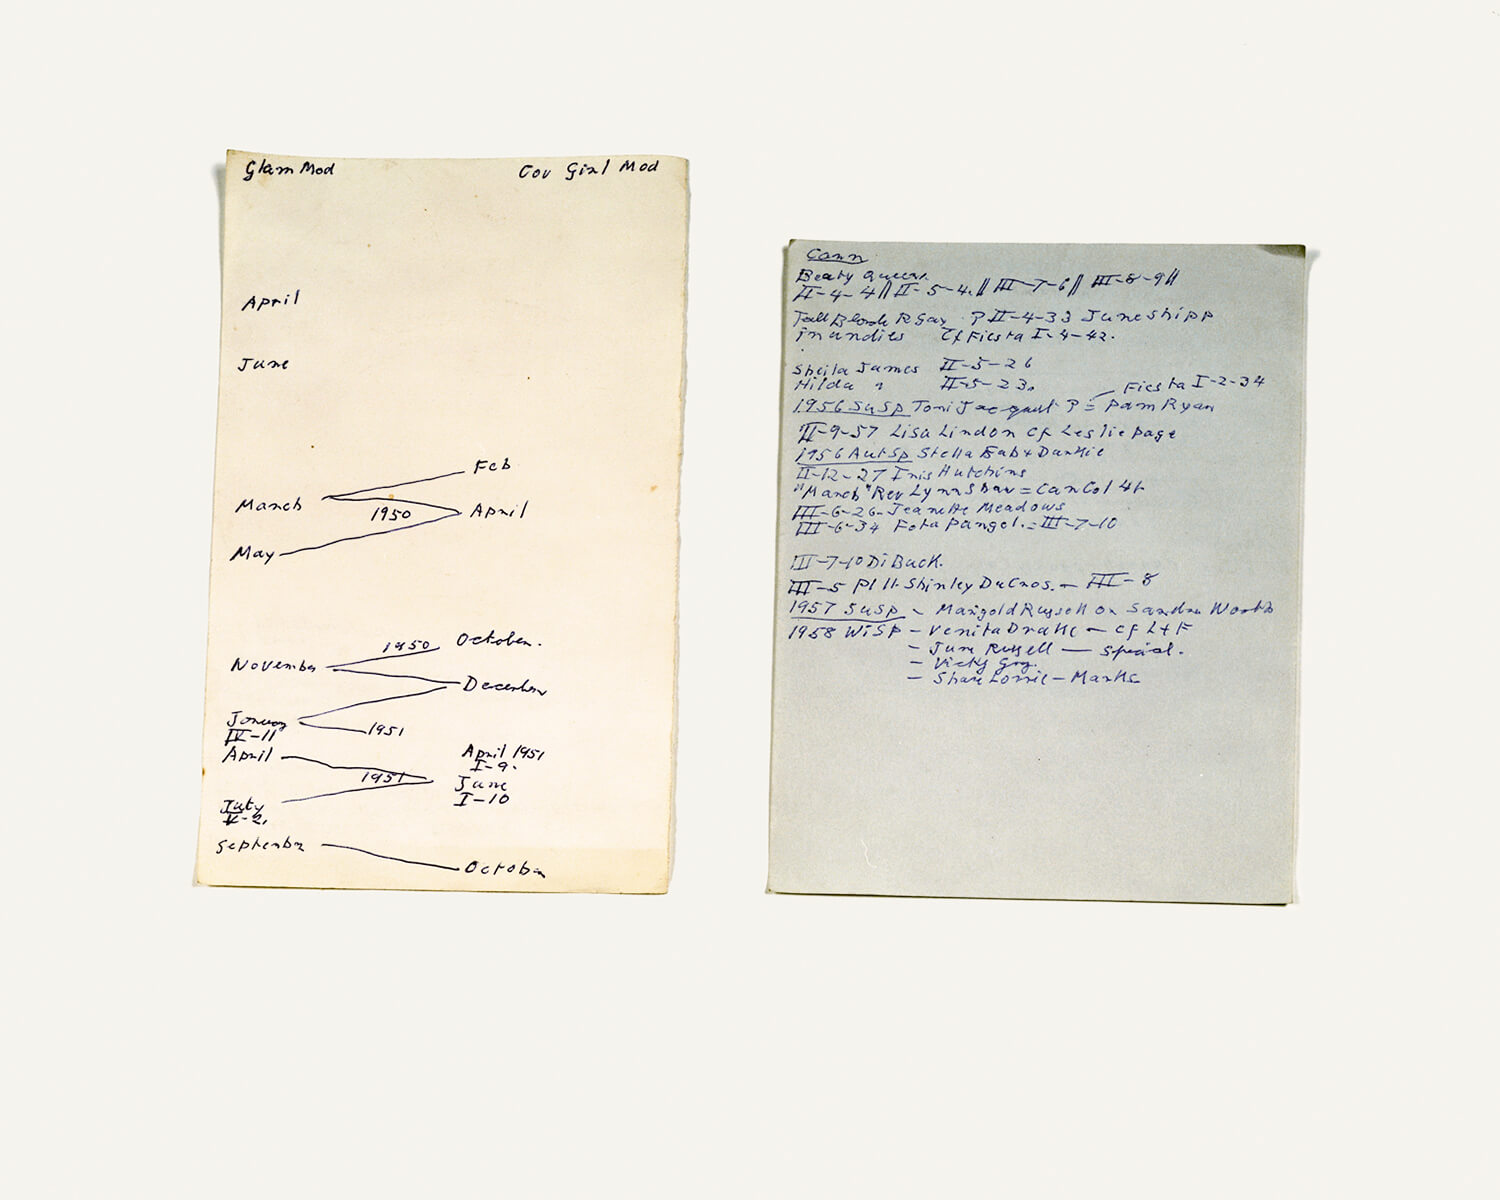 Glam Mod Cov Girl Mod
April
June
Feb
March
1950 April
May
1950 October.
November
December
January
IV-11 1951
April April 1951
I-9.
1951 June
I-10
July
V-2.
September
October
Cann
Beaty Queens.
II-4-4 || II-5-4. || III-7-6 || III-8-9 ||
Tall Blonde R Gay. ? II-4-33 June Shipp
in undies Cf Fiesta I-4-42.
Sheila James II-5-26
Hilda " II-5-23.
Fiesta I-2-34
1956 SuSp Toni Jacquet ? = Pam Ryan
II-9-57 Lisa Lindon cf Leslie Page
1956 AutSp Stella Fab + Dankie
II-12-27 Inis Hutchins
"March" Rev Lynn Shaw = Can Col 4+
III-6-26- Jeanette Meadows
III-6-34 Fota Pangel. = III-7-10
III-7-10 Di Back.
III-5 Pl 11. Shirley DuCros. - III-8
1957 SuSp - Marigold Russell or Sandra Worth
1958 WiSp - Venita Drake - cf L+F
- June Russell - Special.
- Vicky Gray.
- Shane Lorrie - Marks